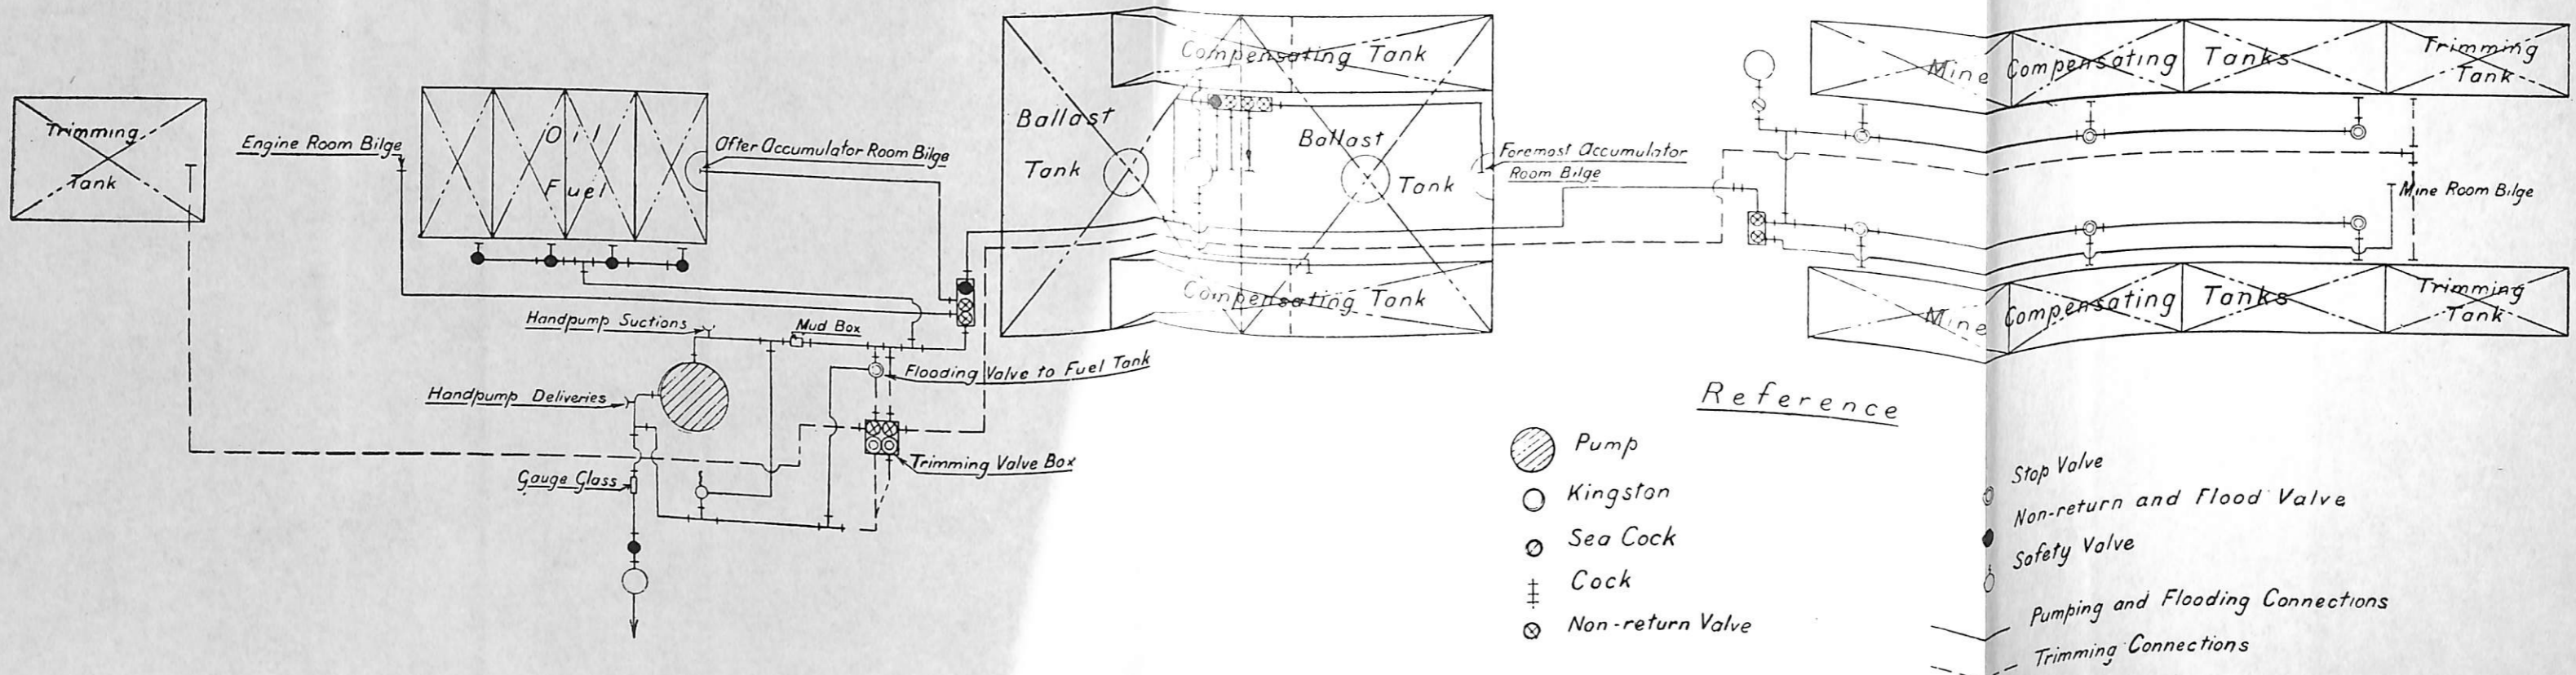 Trimming
Tank
Engine Room Bilge
Oil
Fuel
After Accumulator Room Bilge
Handpump Suctions
Mud Box
Flooding Valve to Fuel Tank
Handpump Deliveries
Trimming Valve Box
Gauge Glass
Ballast
Tank
Compensating Tank
Ballast
Tank
Compensating Tank
Foremost Accumulator
Room Bilge
Mine Compensating Tanks
Trimming
Tank
Mine Room Bilge
Mine Compensating Tanks
Trimming
Tank
Reference
Pump
Kingston
Sea Cock
Cock
Non-return Valve
Stop Valve
Non-return and Flood Valve
Safety Valve
Pumping and Flooding Connections
Trimming Connections